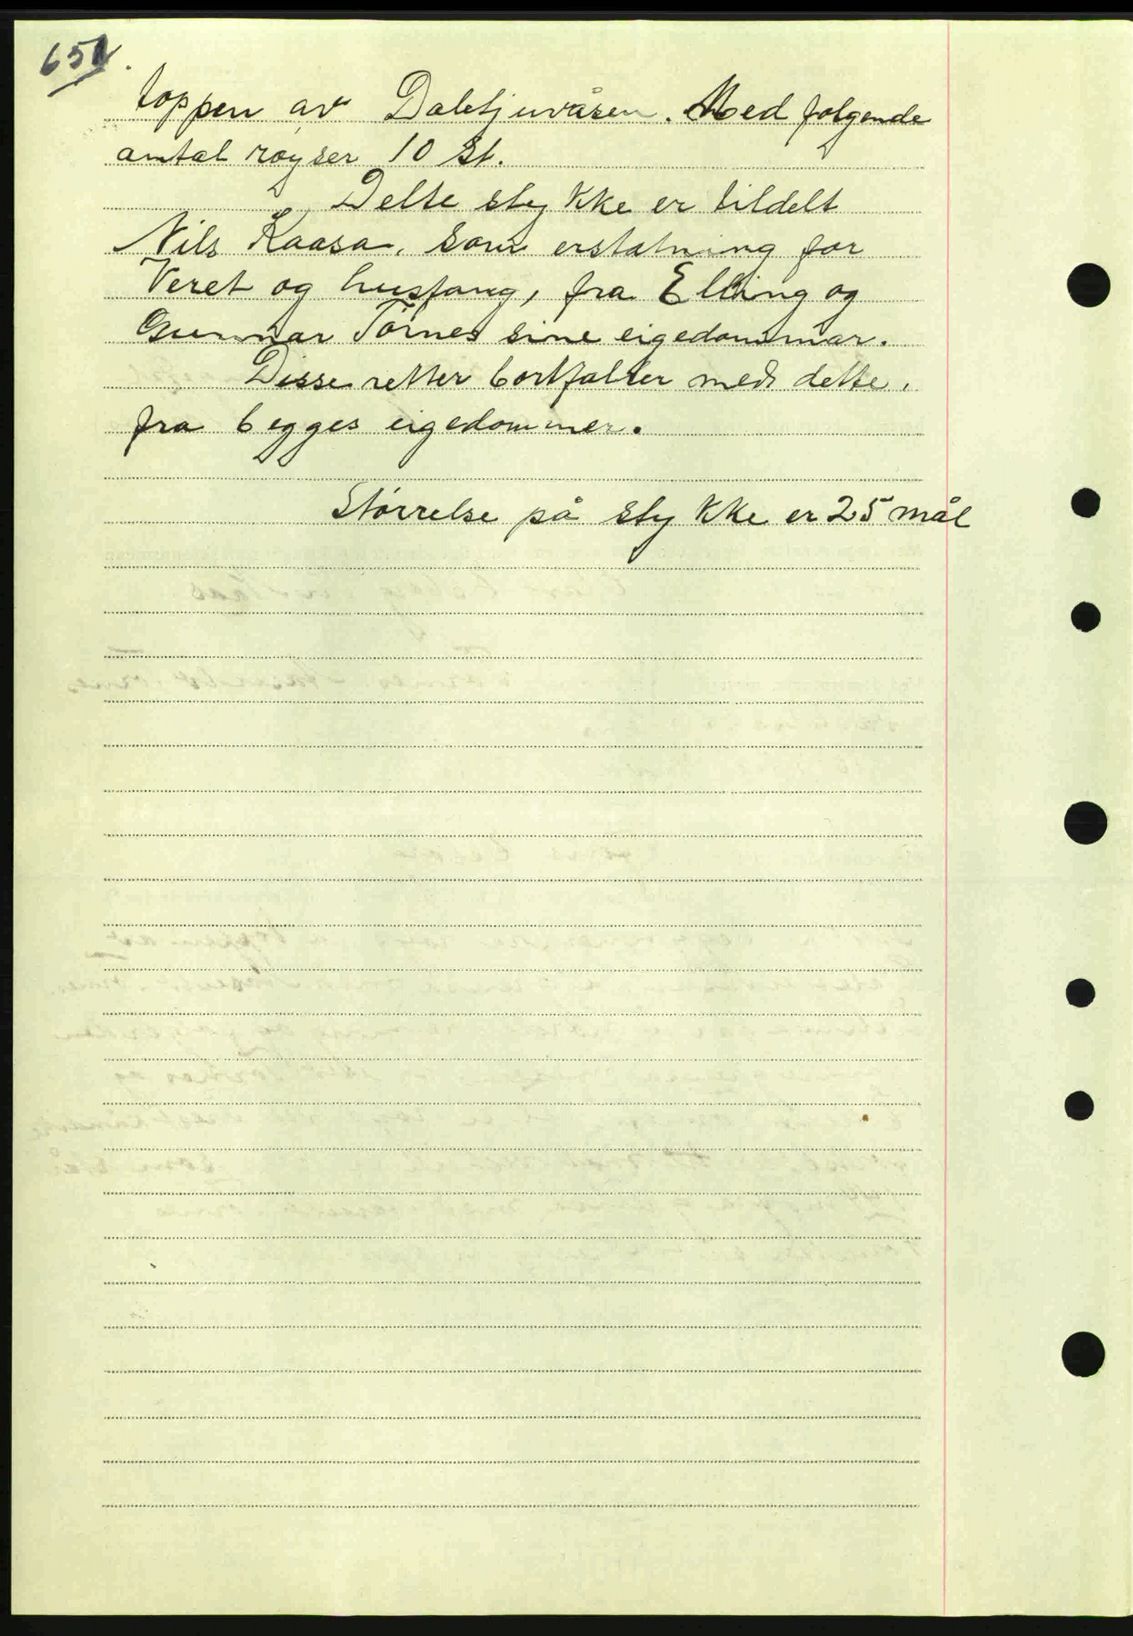 651.
toppen av Daletjuvåsen. Med følgende
antal røyser 10 st.
Dette stykke er tildelt
Nils Kaasa, som erstatning for
Veret og husfang, fra Elling og
Gunnar Tørnes sine eigedommar.
Disse retter bortfaller med dette,
fra begges eigedommer.
Størrelse på stykke er 25 mål